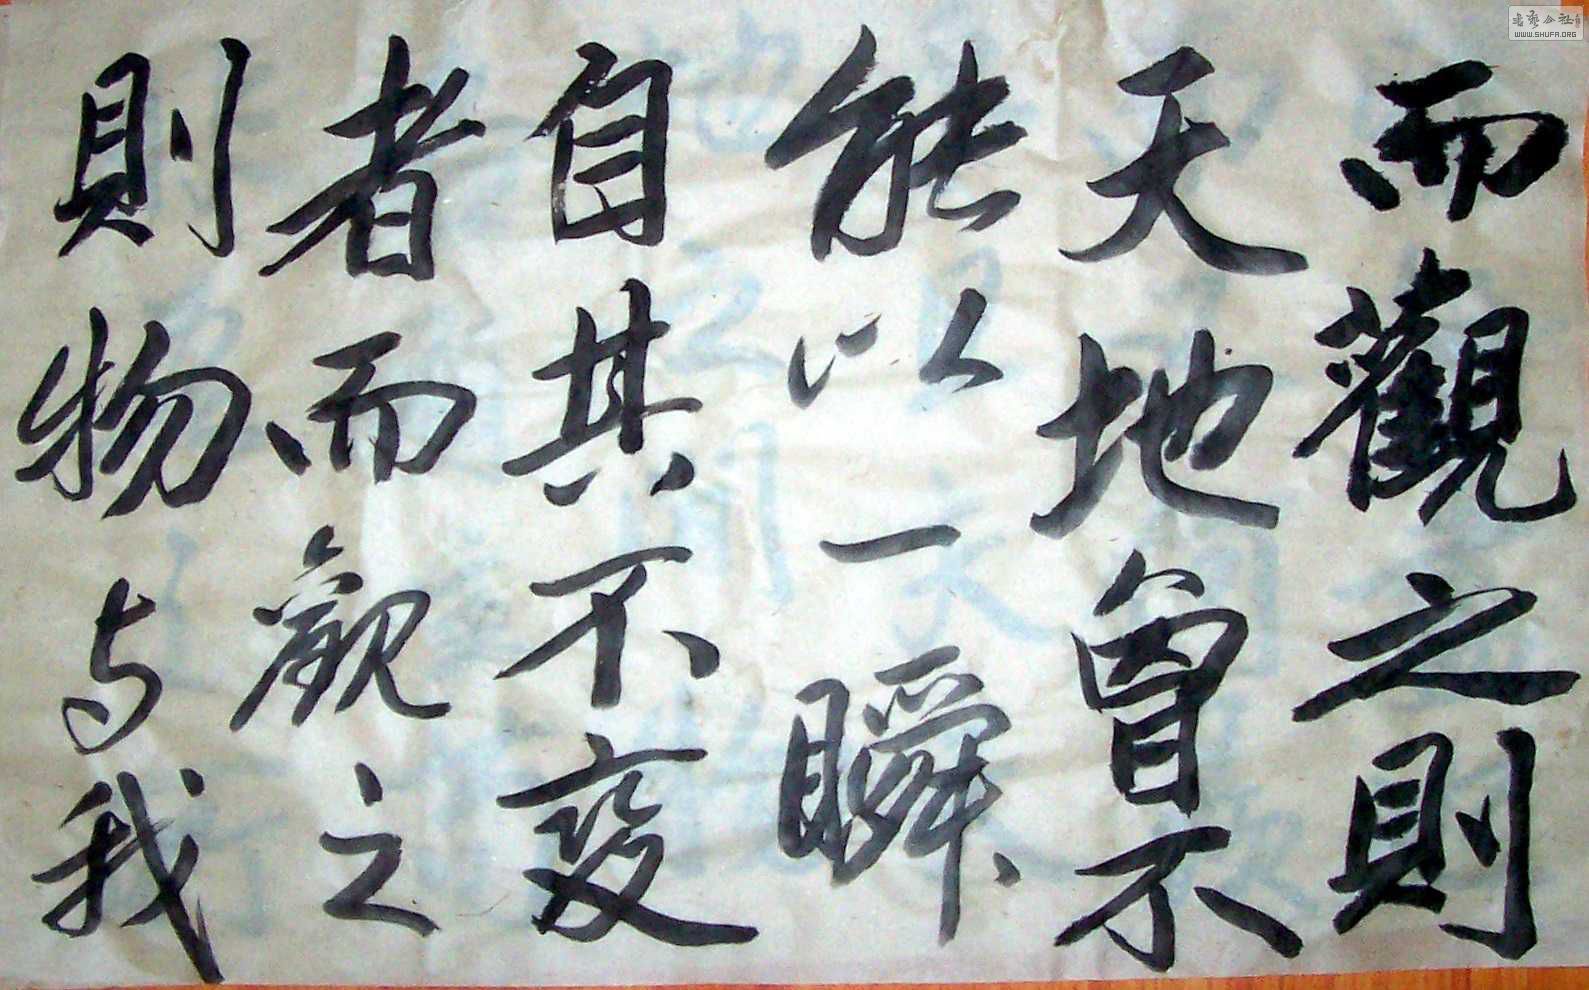 而觀之則
天地曾不
能以一瞬
自其不变
者而觀之
則物与我
WWW.SHUFA.ORG